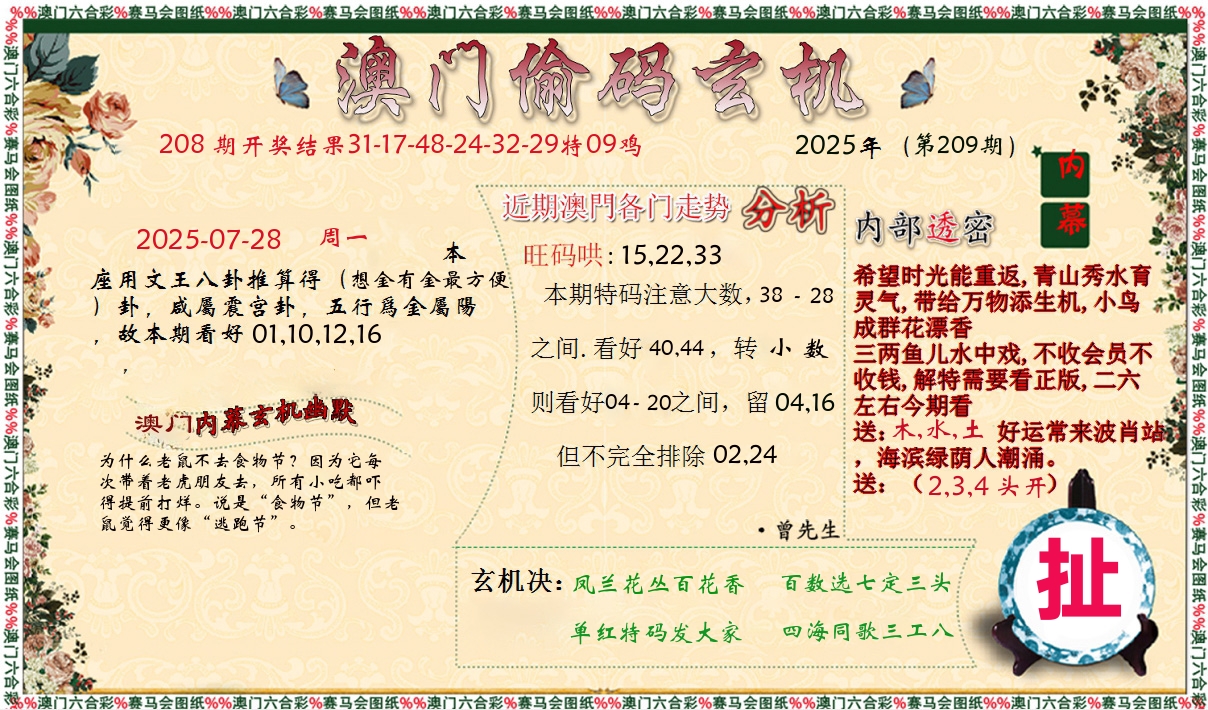 %%澳门六合彩%赛马会图纸%%澳门六合彩%赛马会图纸%%澳门六合彩%赛马会图纸%%澳门六合彩%赛马会图纸%%澳门六合彩%赛马会图纸%%澳门六合彩%赛马会图纸%%
澳门偷码玄机
208 期开奖结果31-17-48-24-32-29特09鸡
2025年（第209期）
内幕
2025-07-28 周一
本
座用文王八卦推算得（想金有金最方便
）卦，咸屬震宫卦，五行爲金屬陽
，故本期看好 01,10,12,16
，
澳门内幕玄机幽默
为什么老鼠不去食物节？因为它每
次带着老虎朋友去，所有小吃都吓
得提前打烊。说是“食物节”，但老
鼠觉得更像“逃跑节”。
近期澳門各门走势 分析
旺码哄: 15,22,33
本期特码注意大数, 38 - 28
之间. 看好 40,44 ，转 小 数
则看好04- 20之间，留 04,16
但不完全排除 02,24
·曾先生
内部透密
希望时光能重返, 青山秀水育
灵气, 带给万物添生机, 小鸟
成群花漂香
三两鱼儿水中戏, 不收会员不
收钱, 解特需要看正版, 二六
左右今期看
送: 木,水,土 好运常来波肖站
，海滨绿荫人潮涌。
送: （2,3,4 头开）
玄机决: 凤兰花丛百花香 百数选七定三头
单红特码发大家 四海同歌三工八
扯
%%澳门六合彩%赛马会图纸%%澳门六合彩%赛马会图纸%%澳门六合彩%赛马会图纸%%澳门六合彩%赛马会图纸%%澳门六合彩%赛马会图纸%%澳门六合彩%赛马会图纸%%